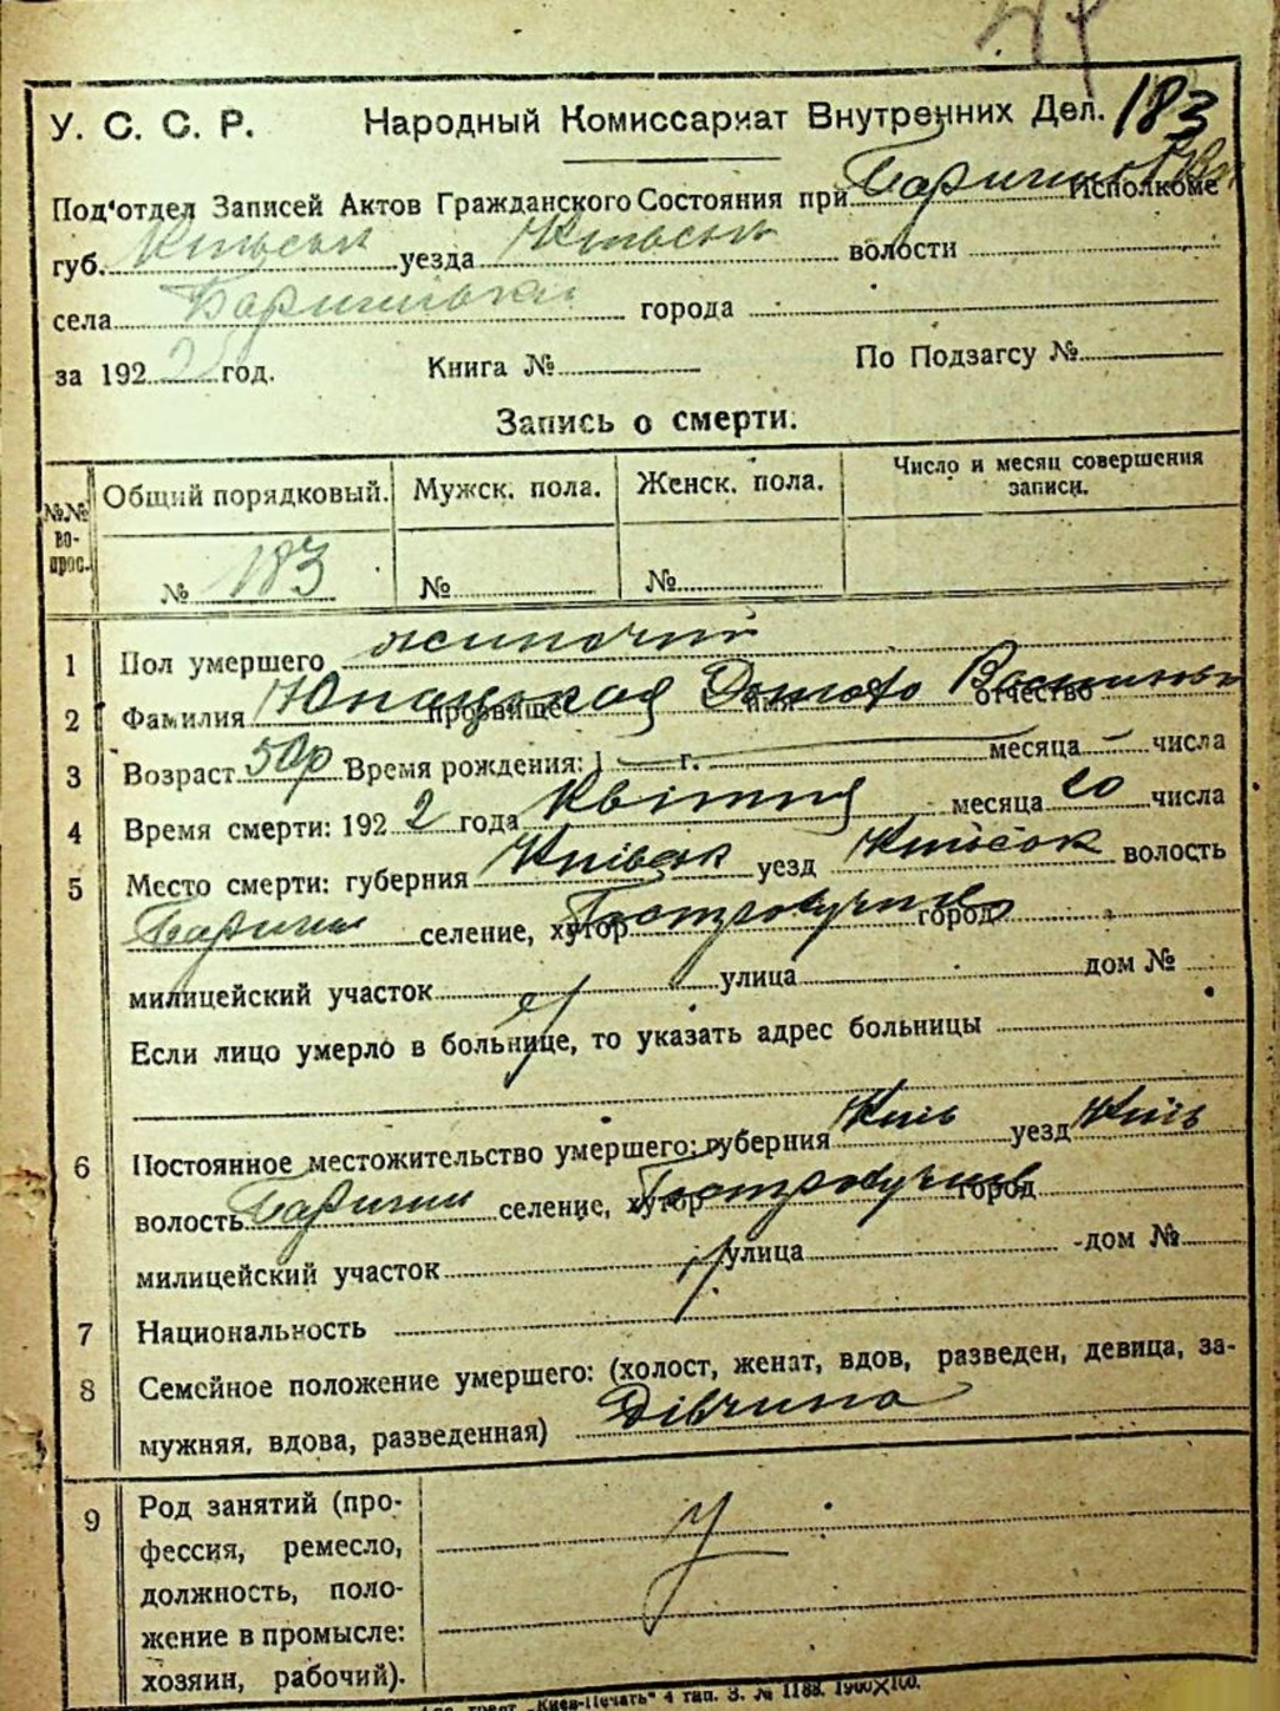 У. С. С. Р. Народный Комиссариат Внутренних Дел. 183
Под'отдел Записей Актов Гражданского Состояния при Исполкоме
губ. Київськ уезда Київськ волости
села Баришівки города
за 192 год. Книга № По Подзагсу №
Запись о смерти.
№№ вопрос. Общий порядковый. Мужск. пола. Женск. пола. Число и месяц совершения записи.
№ 183 № №
1 Пол умершего жиночий
2 Фамилия прозвище имя отчество
3 Возраст 50р Время рождения: 1 г. месяца числа
4 Время смерти: 192 2 года Квітня месяца 20 числа
5 Место смерти: губерния Київськ уезд волость
Бариш селение, хутор город
милицейский участок улица дом №
Если лицо умерло в больнице, то указать адрес больницы
6 Постоянное местожительство умершего: губерния Київ уезд Київ
волость Баришив селение, хутор город
милицейский участок улица дом №
7 Национальность
8 Семейное положение умершего: (холост, женат, вдов, разведен, девица, за-
мужняя, вдова, разведенная) Дівчина
9 Род занятий (про-
фессия, ремесло,
должность, поло-
жение в промысле:
хозяин, рабочий).
трест „Киев-Печать" 4 тип. З. № 1188. 1900×100.